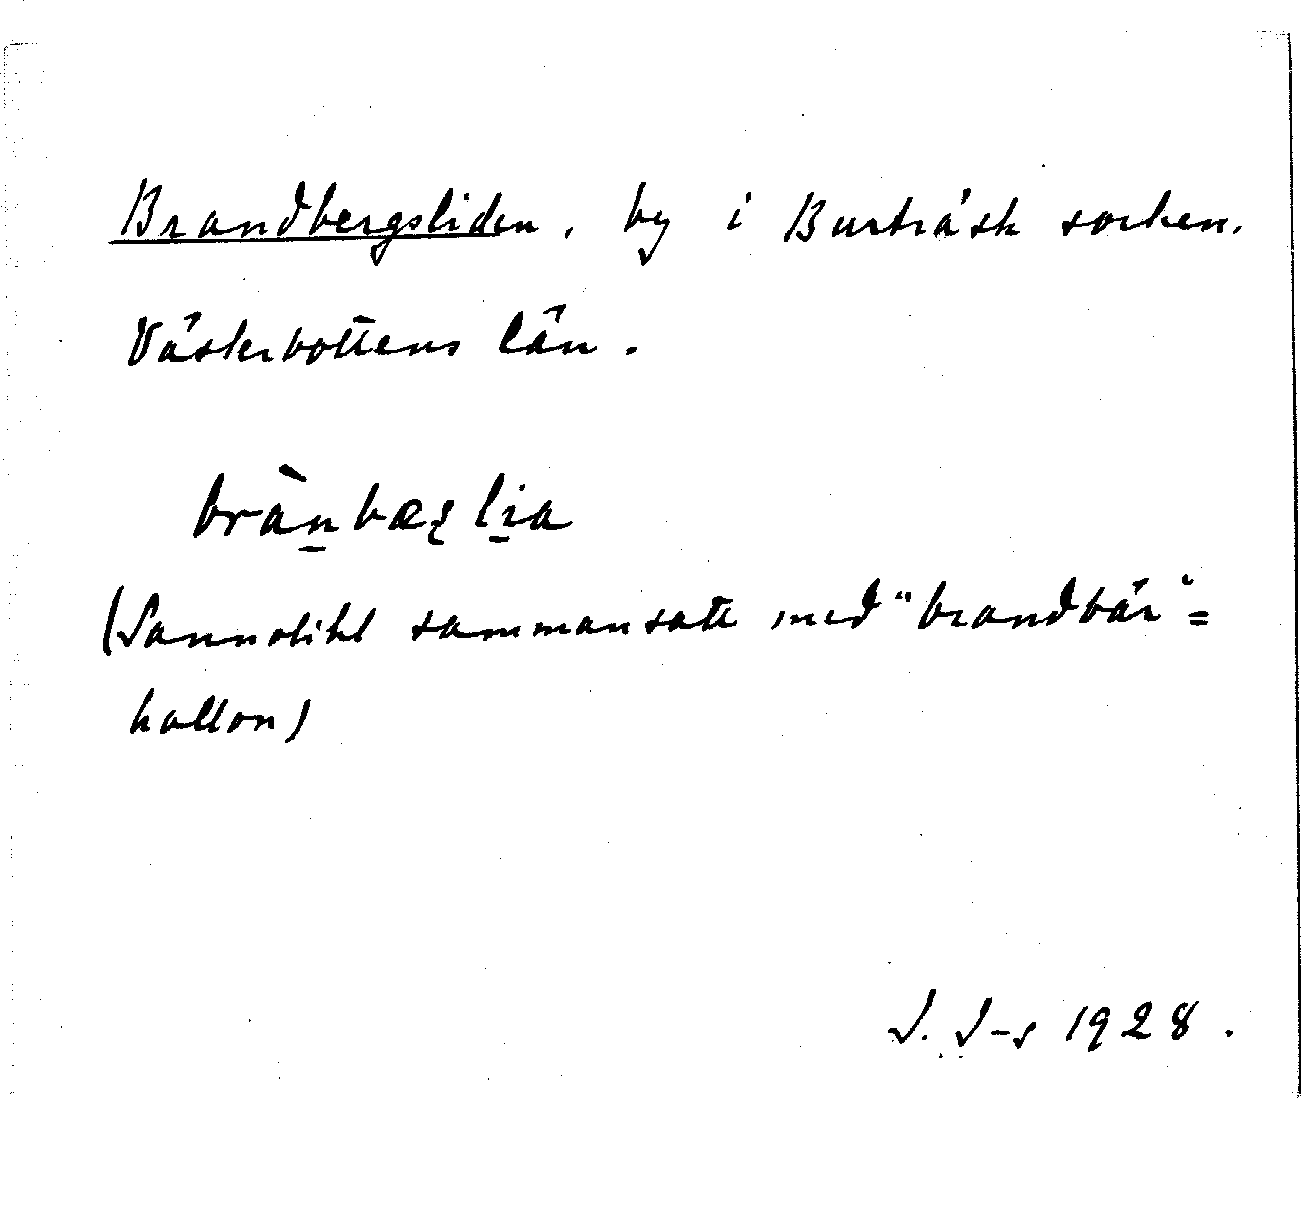 Brandbergsliden, by i Burträsk socken.
Västerbottens län.
brànbæʂlia
(Sannolikt sammansatt med "brandbär" =
hallon)
J. J-s 1928.